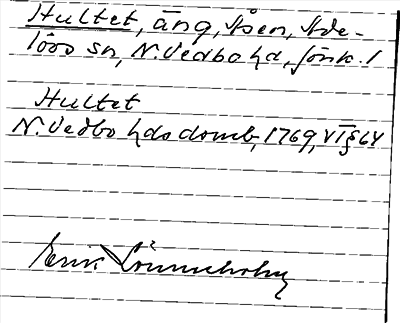 Hultet, äng, Åsen, Ade-
löv sn, N. Vedbo hd, Jönk. l
Hultet
N. Vedbo hds domb, 1769, VI § 64
Erik Lönnerholm